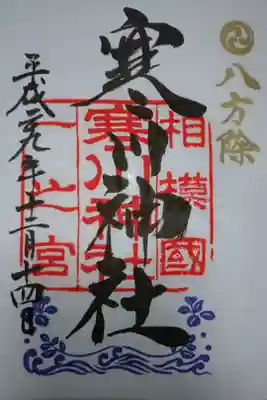 八方除
相模國
寒川神社
寒川神社
一之宮
平成二九年十二月十四日